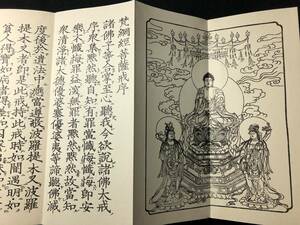 梵網經菩薩戒序
諸佛子等合掌至心聽我今欲說諸佛大戒
序眾集默然聽自知有罪當懺悔懺悔即安
樂不懺悔罪益深無罪者默然默然故當知
眾清淨諸大德優婆塞優婆夷等諦聽佛滅
度後於像法中應當尊敬波羅提木叉波羅
提木叉者即是此戒持此戒時如闇遇明如
貧得寶如病者得